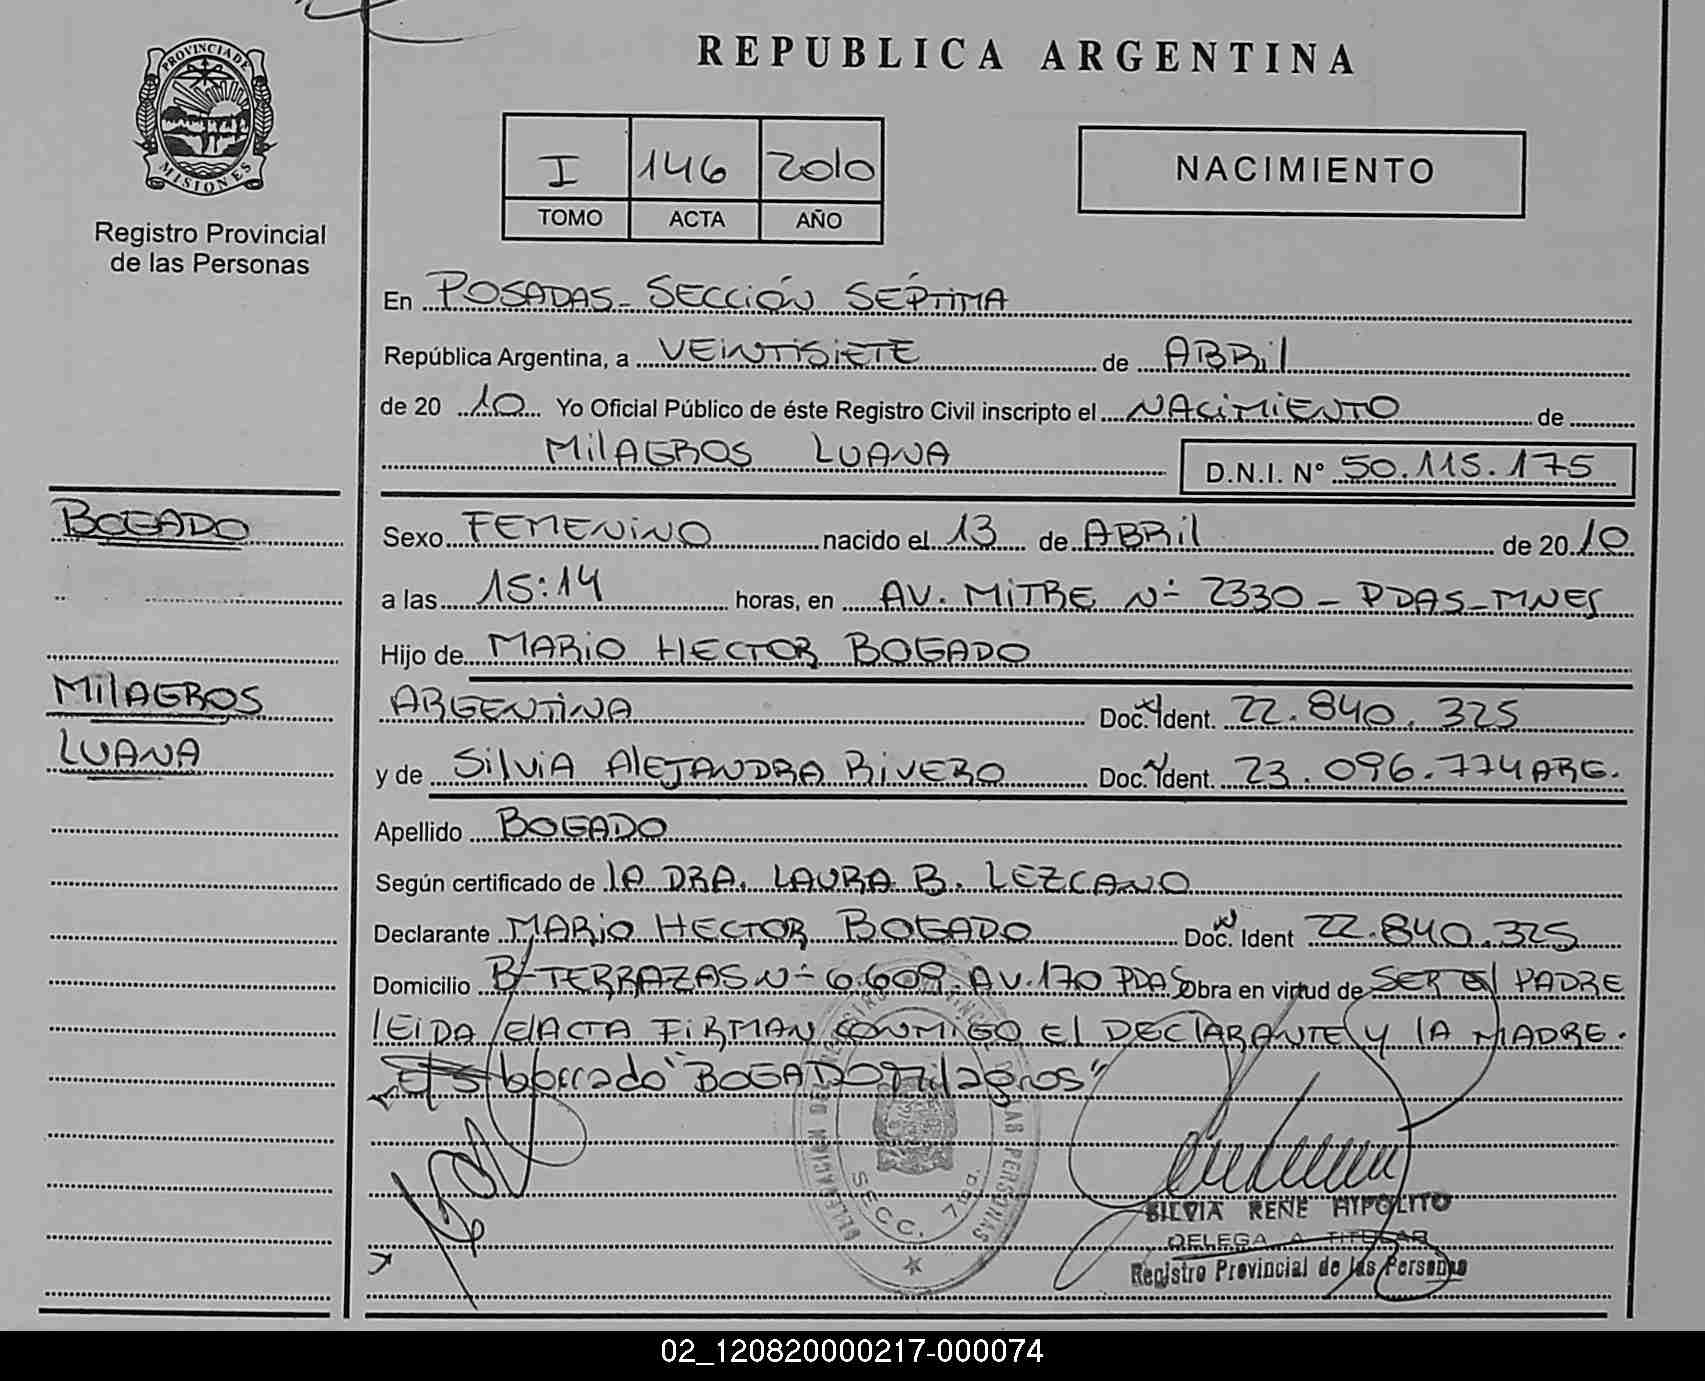 REPUBLICA ARGENTINA
PROVINCIA DE MISIONES
Registro Provincial
de las Personas
I 146 2010
TOMO ACTA AÑO
NACIMIENTO
En POSADAS - SECCIÓN SÉPTIMA
República Argentina, a VEINTISIETE de ABRIL
de 20 10 Yo Oficial Público de éste Registro Civil inscripto el NACIMIENTO de
MILAGROS LUANA D.N.I. N° 50.115.175
BOGADO
MILAGROS
LUANA
Sexo FEMENINO nacido el 13 de ABRIL de 20 10
a las 15:14 horas, en AV. MITRE Nº 2330 - PDAS - MNES
Hijo de MARIO HECTOR BOGADO
ARGENTINA Doc. Ident. 22.840.325
y de SILVIA ALEJANDRA RIVERO Doc. Ident. 23.096.774 ARG.
Apellido BOGADO
Según certificado de LA DRA. LAURA B. LEZCANO
Declarante MARIO HECTOR BOGADO Doc. Ident 22.840.325
Domicilio Bº TERRAZAS Nº 6.609 AV. 170 PDAS Obra en virtud de SER EL PADRE
LEIDA EL ACTA FIRMAN CONMIGO EL DECLARANTE Y LA MADRE.
borrado "BOGADO Milagros"
SECC. 7ma.
SILVIA RENE HYPOLITO
DELEGADA TITULAR
Registro Provincial de las Personas
02_120820000217-000074